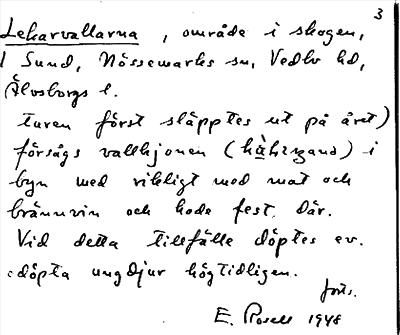 3
Lekarvallarna, område i skogen,
i Sund, Nössemarks sn, Vedbo hd,
Älvsborgs l.
turen först släpptes ut på året)
försågs vallhjonen ( ) i
byn med rikligt med mat och
brännvin och hade fest där.
Vid detta tillfälle döptes ev.
odöpta ungdjur högtidligen.
forts.
E. Rosell 1948